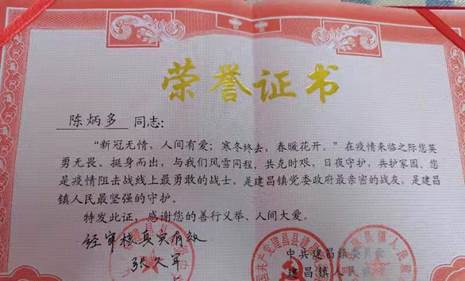 荣誉证书
陈炳多 同志：
“新冠无情，人间有爱；寒冬终去，春暖花开。”在疫情来临之际您英
勇无畏、挺身而出，与我们风雪同程，共克时艰，日夜守护，共护家园，您
是疫情阻击战线上最勇敢的战士，是建昌镇党委政府最亲密的战友，是建昌
镇人民最坚强的守护。
特发此证，感谢您的善行义举、人间大爱。
经审核真实有效
张久军
中共建昌镇委员会
建昌镇人民